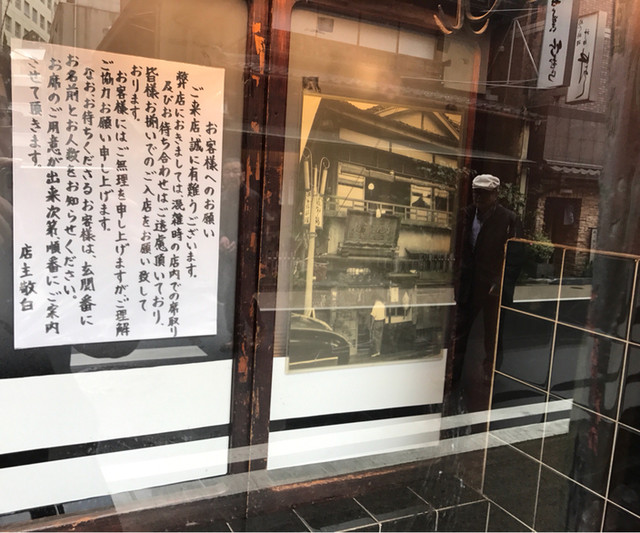 お客様へのお願い
ご来店誠に有難うございます。
弊店におきましては、混雑時の店内での席取り
及びお待ち合わせはご遠慮頂いており、
皆様お揃いでのご入店をお願い致して
おります。
お客様にはご無理を申し上げますがご理解
ご協力お願い申し上げます。
なお、お待ちくださるお客様は、玄関番に
お名前とお人数をお知らせください。
お席のご用意が出来次第、順番に、ご案内
させて頂きます。
店主敬白